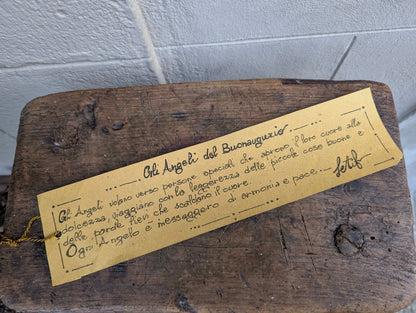 Gli Angeli del Buonaugurio
Gli Angeli volano verso persone speciali che aprono il loro cuore alla
dolcezza, viaggiano con la leggerezza delle piccole cose buone e
delle parole lievi che scaldano il cuore.
Ogni Angelo è messaggero di armonia e pace....